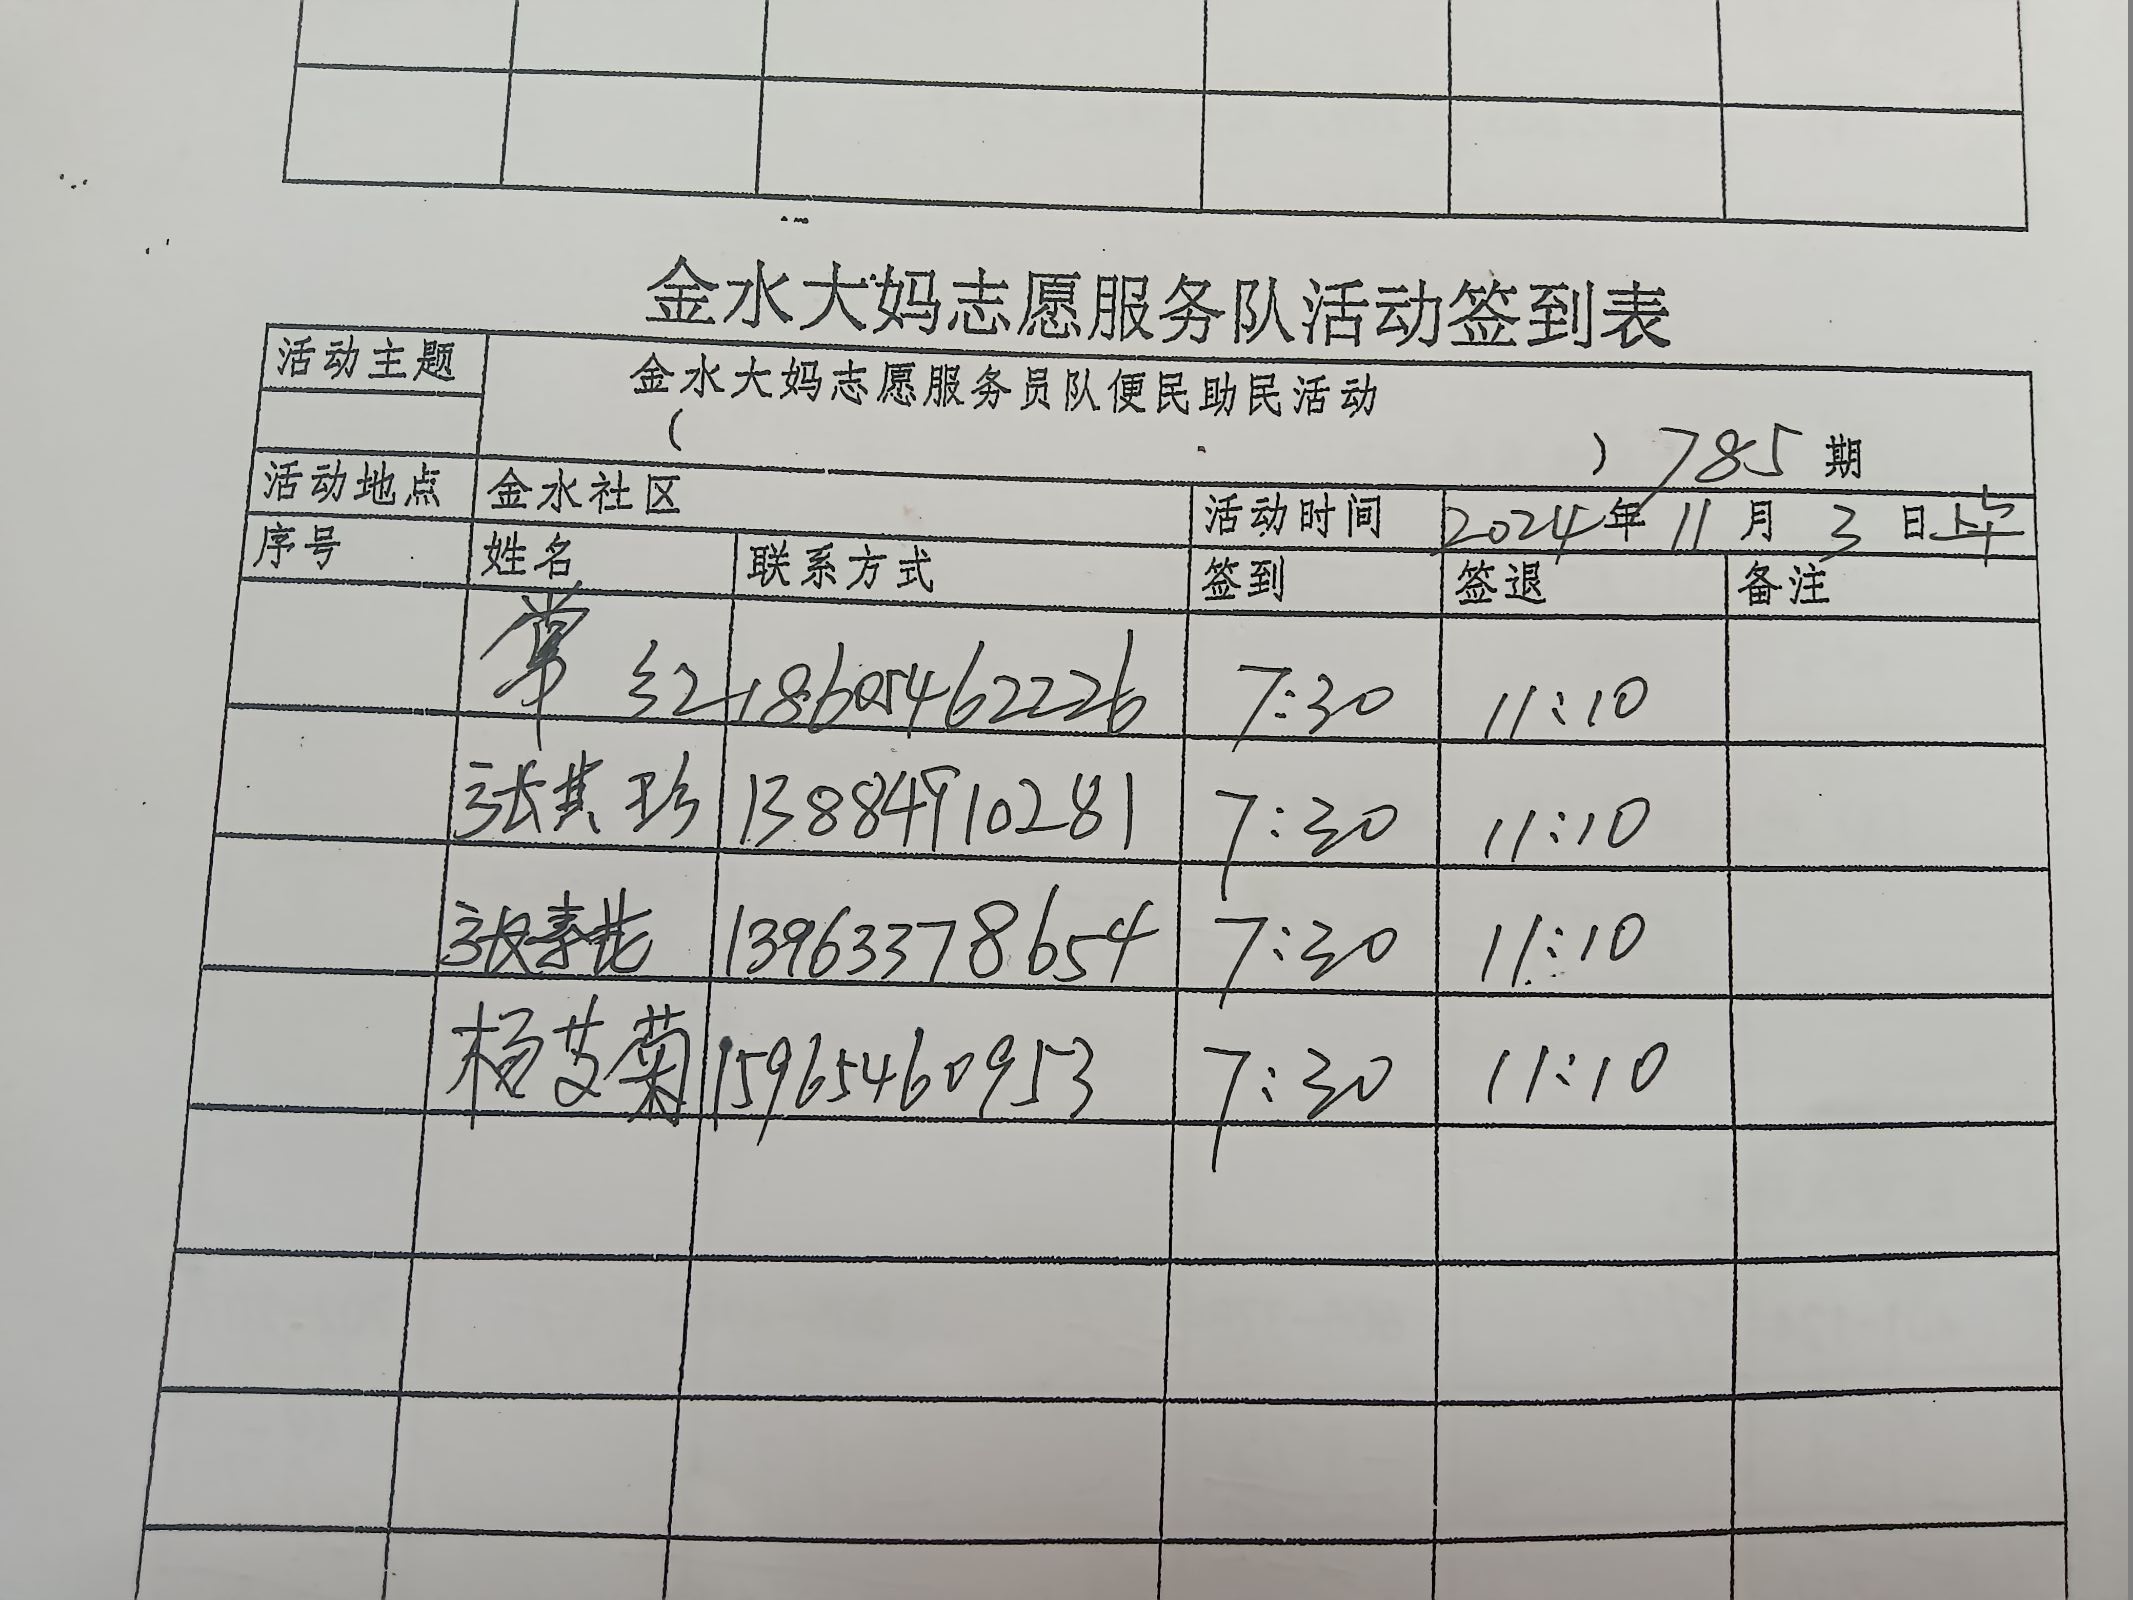 金水大妈志愿服务队活动签到表
活动主题 金水大妈志愿服务员队便民助民活动
( ) 785 期
活动地点 金水社区 活动时间 2024年 11 月 3 日上午
序号 姓名 联系方式 签到 签退 备注
常红 18605462226 7:30 11:10
张其珍 13884910281 7:30 11:10
张素 13963378654 7:30 11:10
杨艾菊 15965460953 7:30 11:10